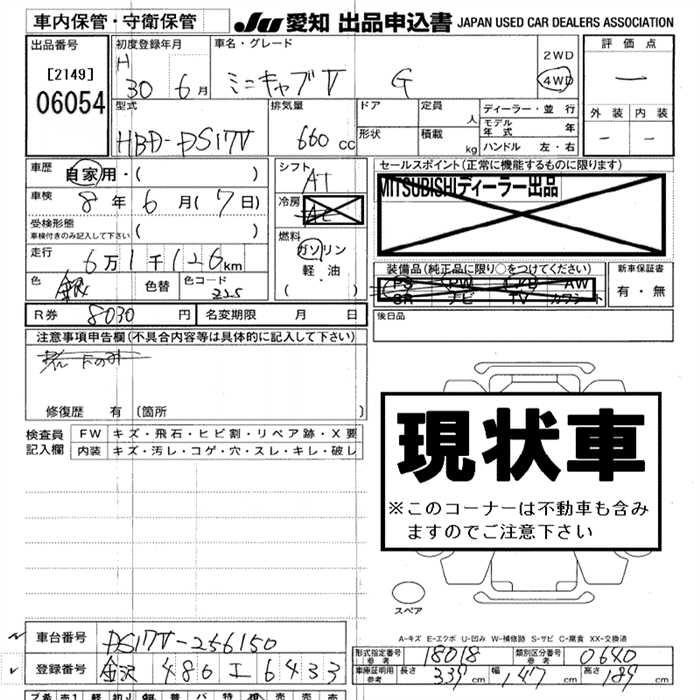 車内保管・守衛保管
JU 愛知 出品申込書 JAPAN USED CAR DEALERS ASSOCIATION
出品番号
[2149]
06054
初度登録年月
H 30 6月
車名・グレード
ミニキャブV G
2WD
4WD
評価点
—
外装 内装
— —
型式
HBD-DS17V
排気量
660cc
ドア
定員 人
形状
積載 kg
ディーラー・並行
モデル年式 年
ハンドル 左・右
車歴
自家用・( )
車検
8年 6月(7日)
受検形態
車検付きのみ記入して下さい ( )
走行
6万1千126km
色
銀
色替
色コード
シフト
AT
冷房
AC
燃料
ガソリン
軽・油
( )
セールスポイント(正常に機能するものに限ります)
MITSUBISHIディーラー出品
装備品(純正品に限り○をつけてください)
PS PW AW
SR ナビ TV カワシート
新車保証書
有・無
後日品
R券 8030円
名変期限 月 日
注意事項申告欄(不具合内容等は具体的に記入して下さい)
修復歴 有 〔箇所 〕
検査員
記入欄
FW キズ・飛石・ヒビ割・リペア跡・X要
内装 キズ・汚レ・コゲ・穴・スレ・キレ・破レ
現状車
※このコーナーは不動車も含み
ますのでご注意下さい
スペア
A-キズ E-エクボ U-凹み W-補修跡 S-サビ C-腐食 XX-交換済
車台番号 DS17V-256150
登録番号 金沢 480 エ 6433
形式指定番号
参考
18018
類別区分番号
参考
0640
車庫証明用
参考
長さ 339cm
幅 147cm
高さ 189cm